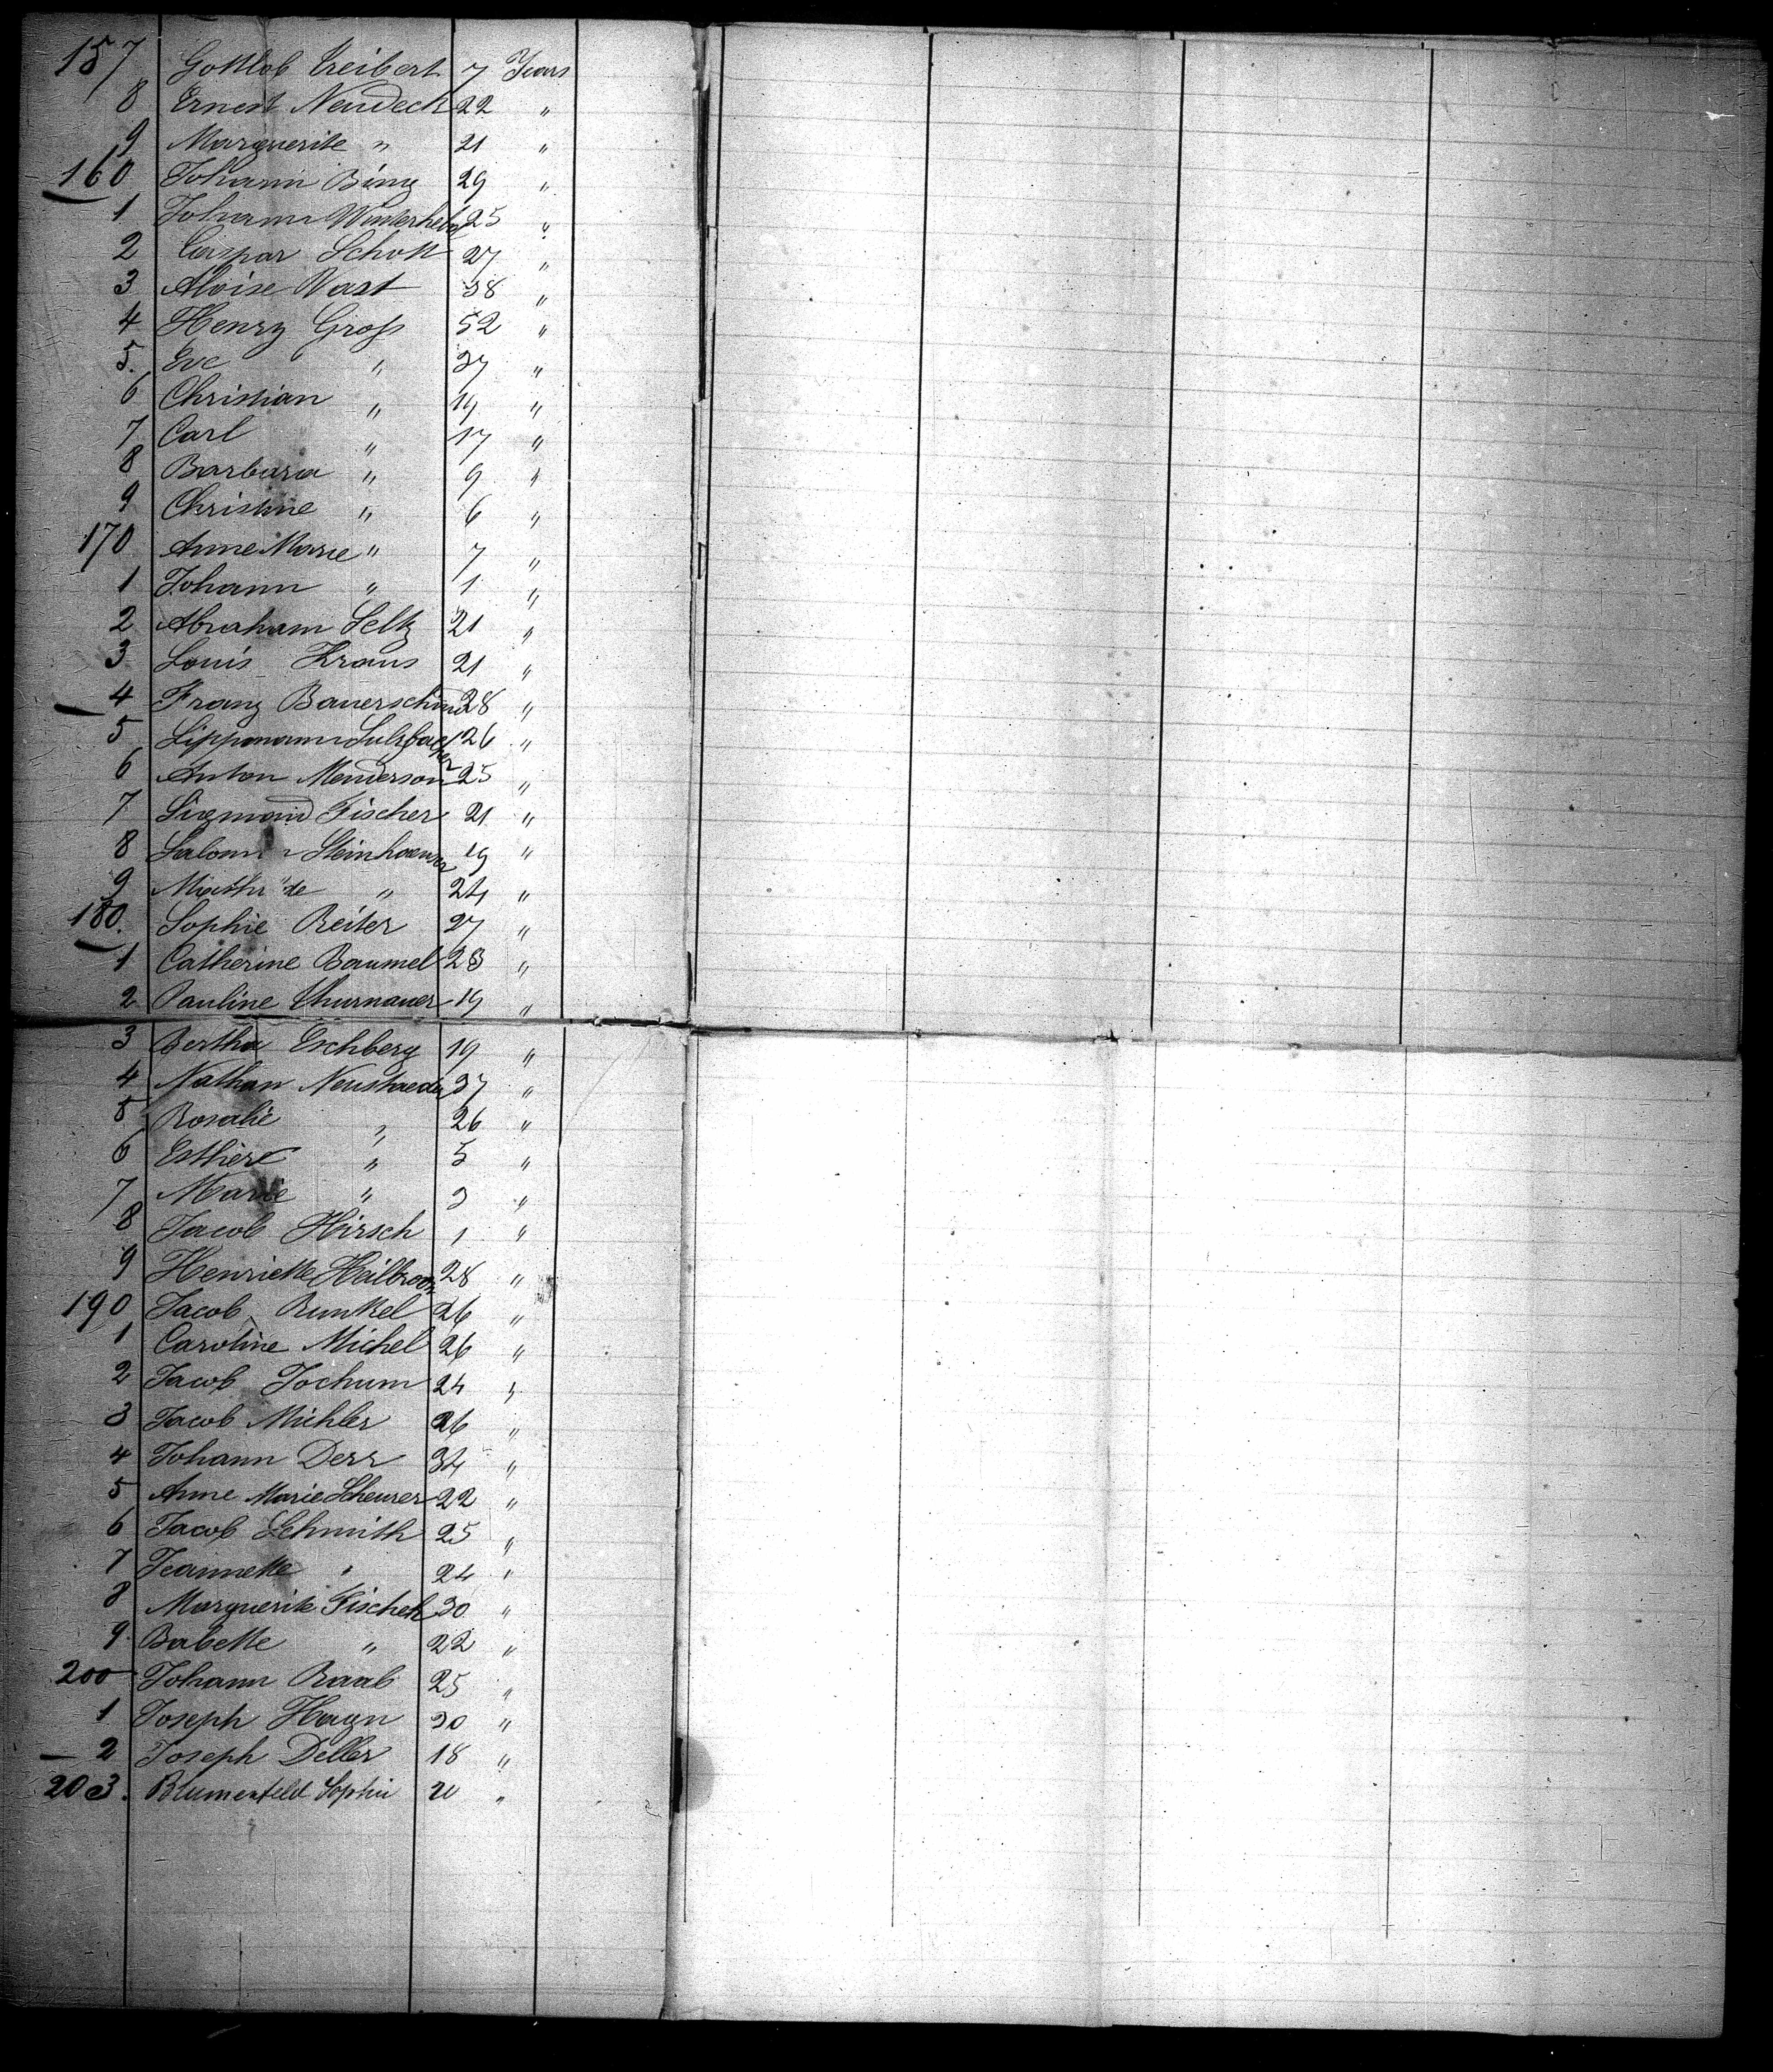 157 Gottlob Treibert 7 Years
8 Ernest Neudeck 22 "
9 Marguerite " 21 "
160 Johann Bing 29 "
1 Johann Winterheld 25 "
2 Caspar Schott 27 "
3 Aloise Wast 38 "
4 Henry Groſs 52 "
5. Eve " 37 "
6 Christian " 19 "
7 Carl " 17 "
8 Barbara " 9 "
9 Christine " 6 "
170 Anne Marie " 7 "
1 Johann " 1 "
2 Abraham Seltz 21 "
3 Louis Kraus 21 "
4 Franz Bauerschmid 28 "
5 Lippmann Sulzbacher 26 "
6 Anton Menderson 25 "
7 Sigmond Fischer 21 "
8 Salomon Steinhaeuser 19 "
9 Mathilde " 24 "
180. Sophie Reiter 27 "
1 Catherine Baumel 28 "
2 Pauline Thurnauer 19 "
3 Bertha Eschberg 19 "
4 Nathan Neustaeder 37 "
5 Rosalie " 26 "
6 Esthere " 5 "
7 Marie " 3 "
8 Jacob Hirsch 1 "
9 Henriette Heilbronn 28 "
190 Jacob Runkel 26 "
1 Caroline Michel 26 "
2 Jacob Jochum 24 "
3 Jacob Michler 26 "
4 Johann Derr 34 "
5 Anne Marie Scheurer 22 "
6 Jacob Schmith 25 "
7 Jeannette " 24 "
8 Marguerite Fischer 30 "
9. Babette " 22 "
200 Johann Raab 25 "
1 Joseph Hagn 30 "
2 Joseph Deller 18 "
203. Blumenfeld Sophie 20 "